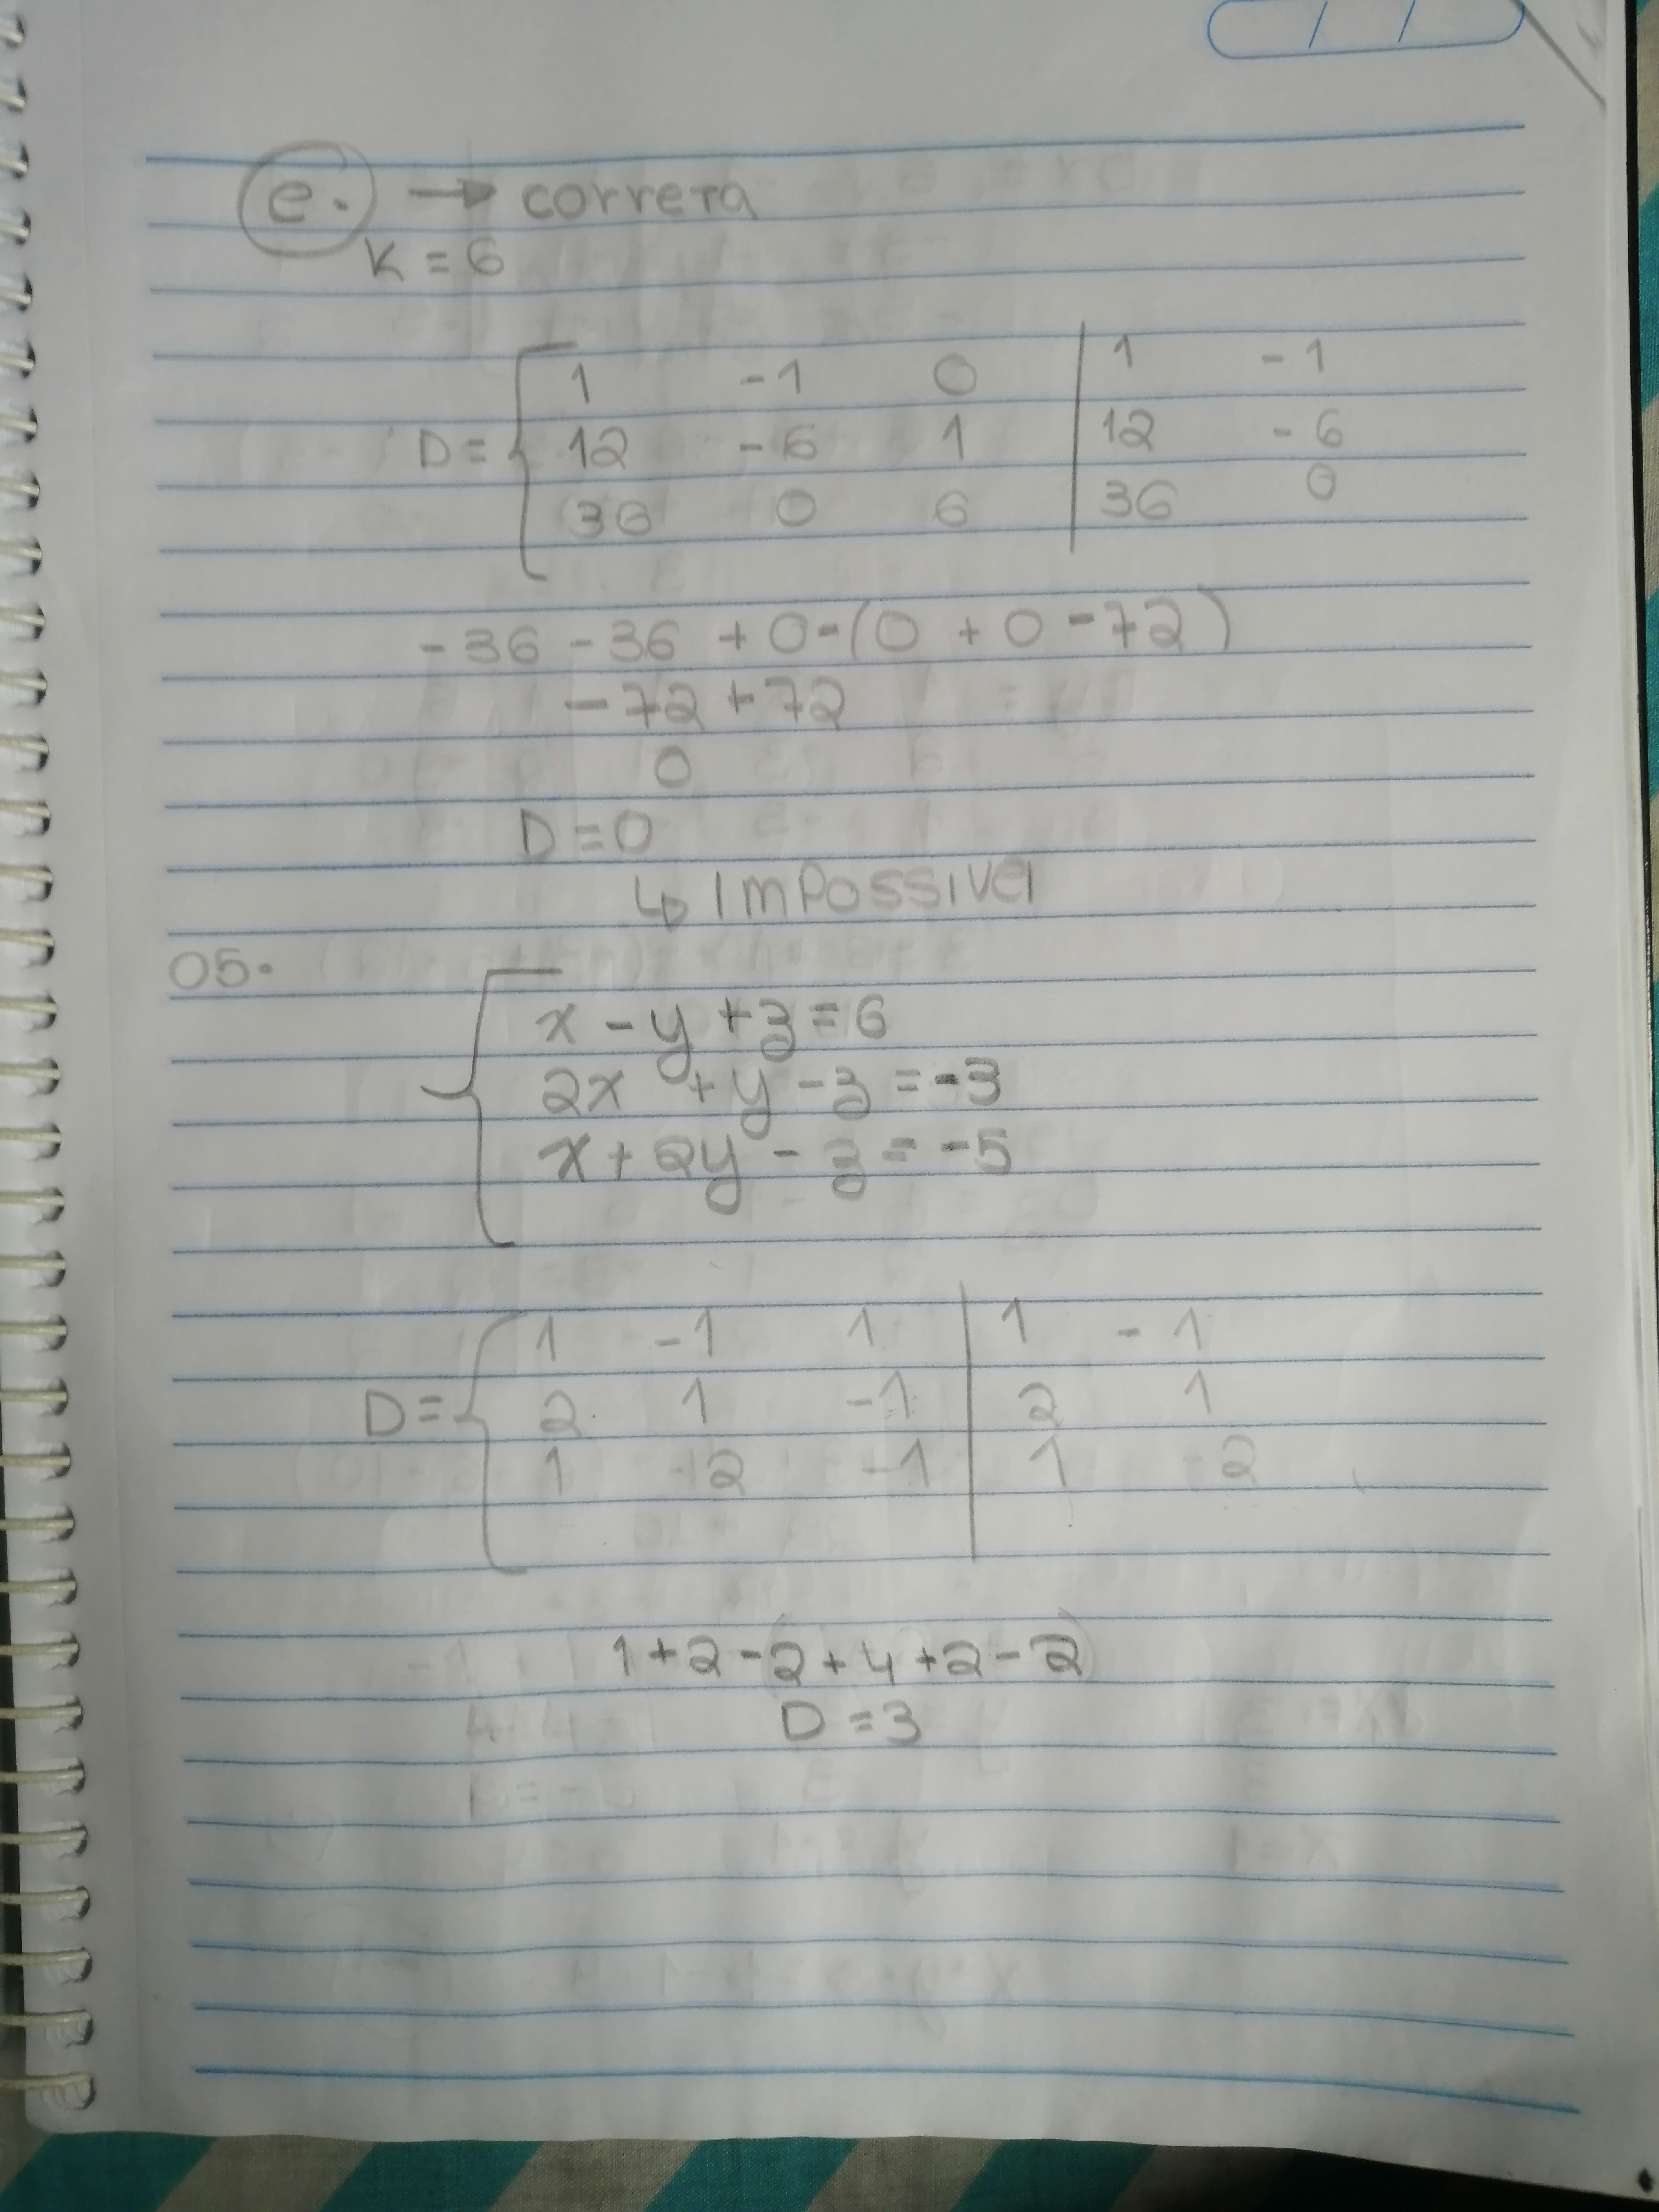 e. → correta
K = 6
D = { 1 -1 0 | 1 -1
12 -6 1 | 12 -6
36 0 6 | 36 0
-36 -36 + 0 - (0 + 0 - 72)
-72 + 72
0
D = 0
↳ Impossivel
05.
x - y + z = 6
2x + y - z = -3
x + 2y - z = -5
D = { 1 -1 1 | 1 -1
2 1 -1 | 2 1
1 2 -1 | 1 2
1 + 2 - 2 + 4 + 2 - 2
D = 3